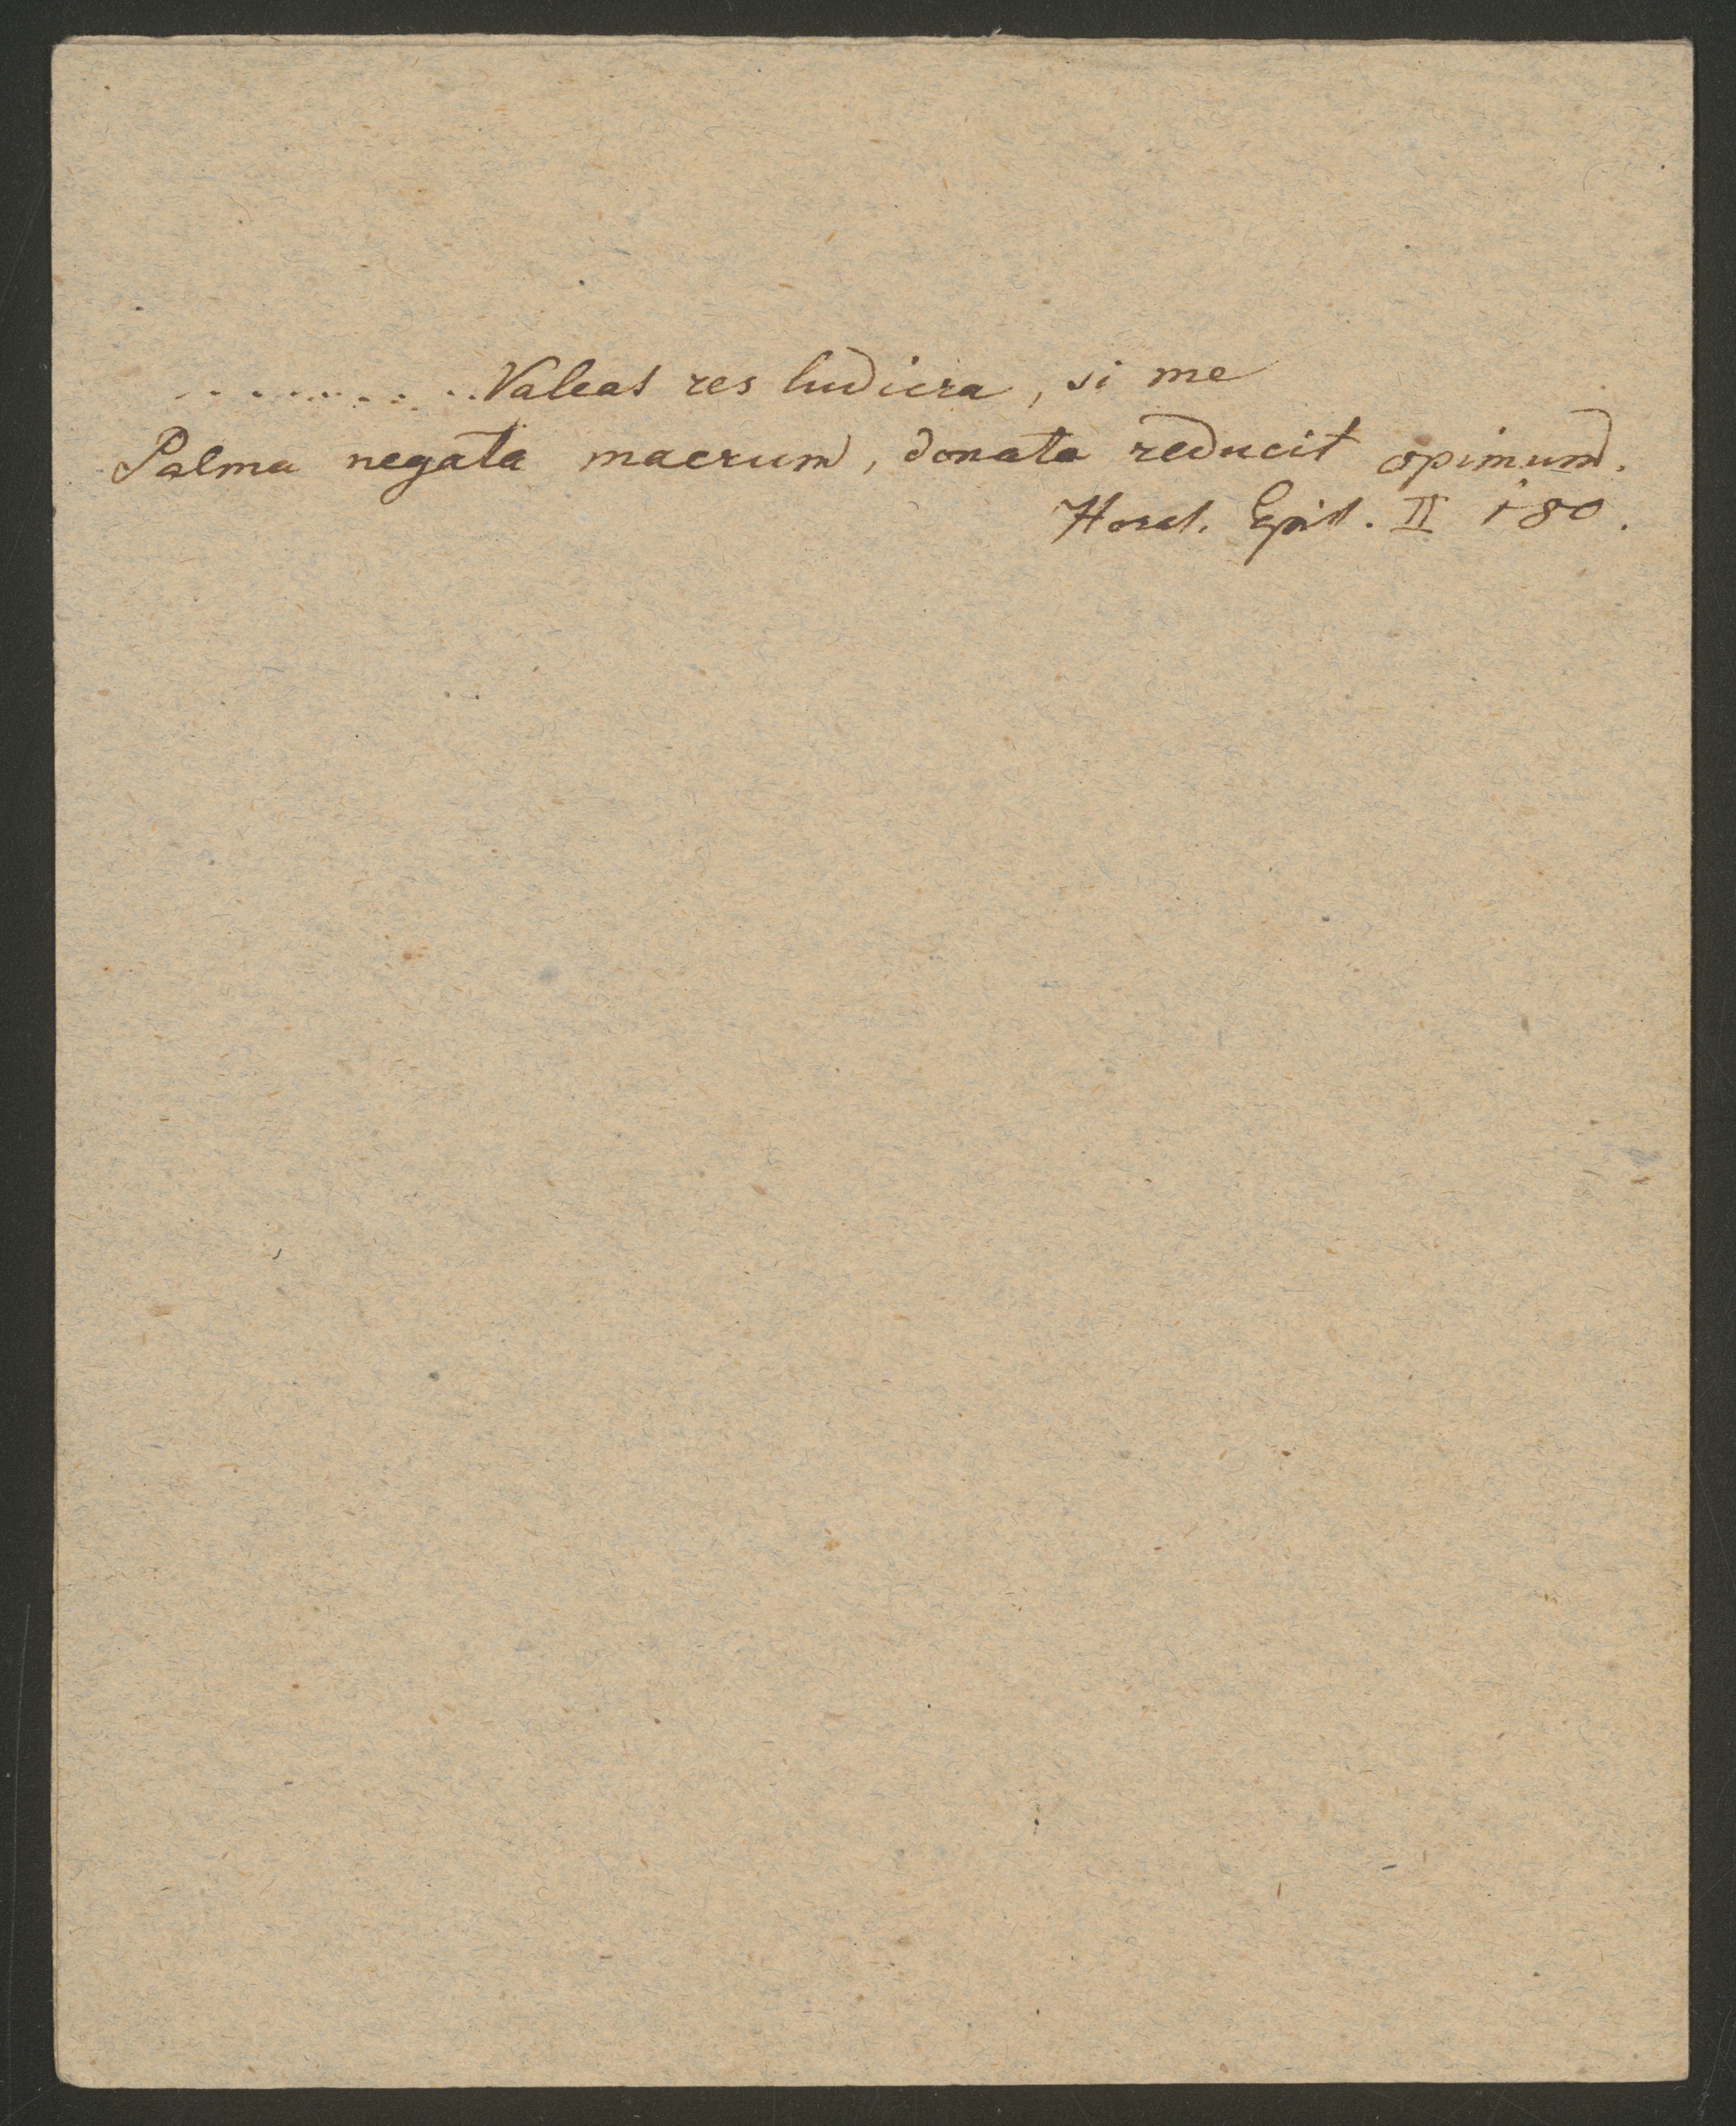 . . . . . . . . . . . . Valeat res ludicra, si me
Palma negata macrum, donata reducit opimum.
Horat. Epist. II 180.